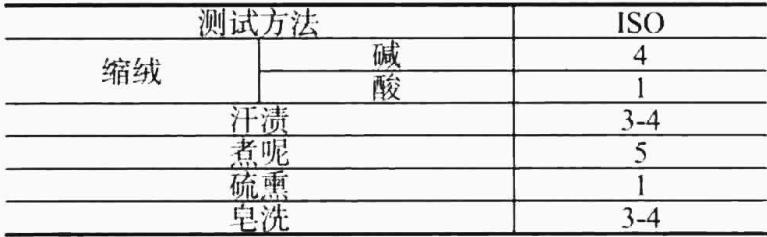 测试方法 ISO
缩绒 碱 4
酸 1
汗渍 3-4
煮呢 5
硫熏 1
皂洗 3-4